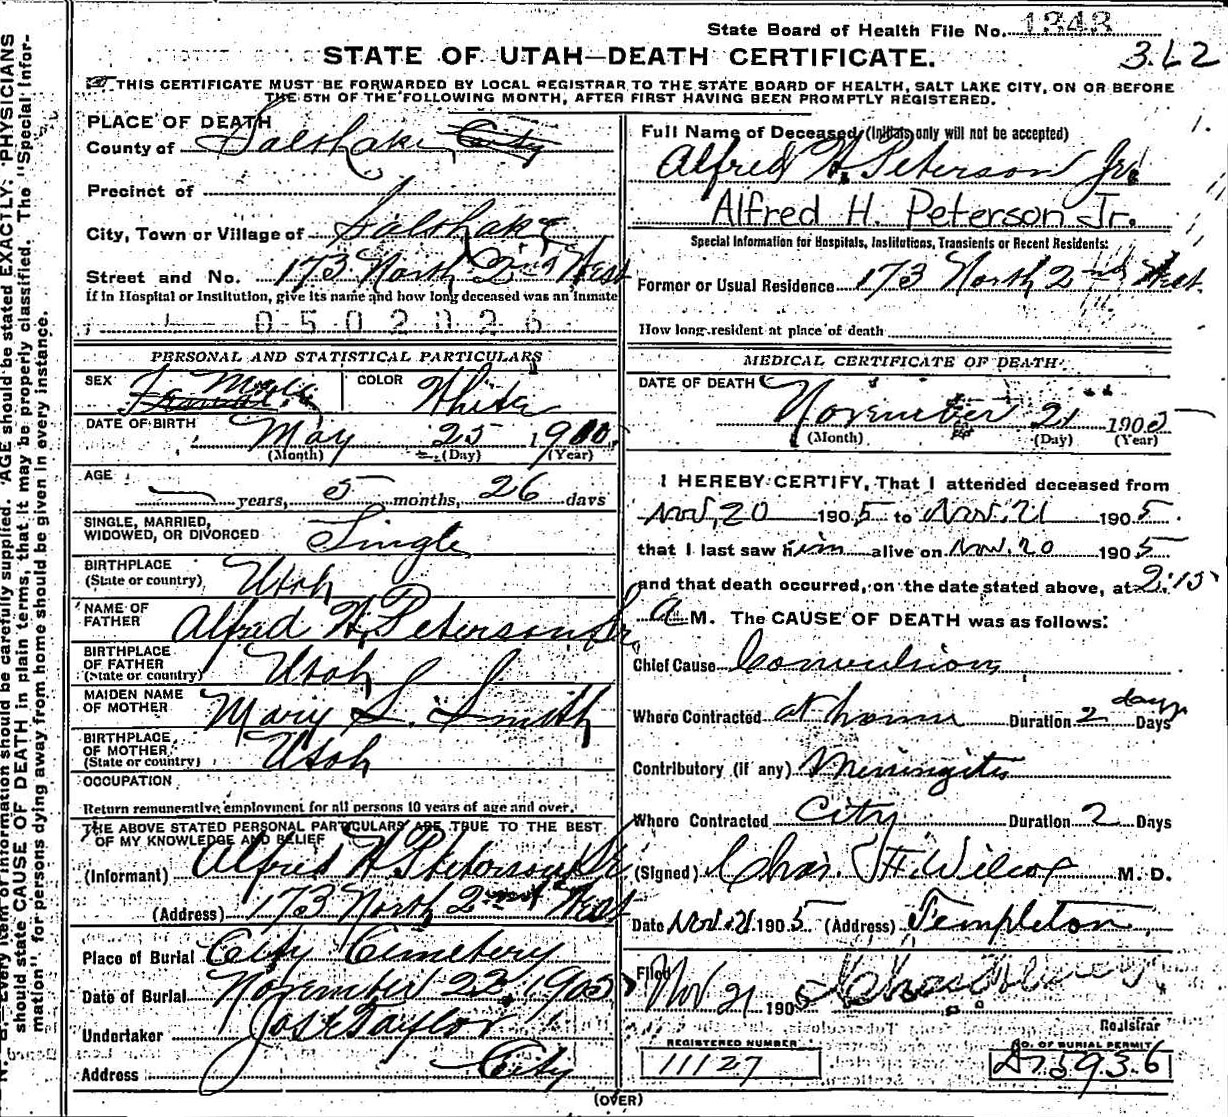 State Board of Health File No. 1343
3 L 2
STATE OF UTAH—DEATH CERTIFICATE.
THIS CERTIFICATE MUST BE FORWARDED BY LOCAL REGISTRAR TO THE STATE BOARD OF HEALTH, SALT LAKE CITY, ON OR BEFORE
THE 5TH OF THE FOLLOWING MONTH, AFTER FIRST HAVING BEEN PROMPTLY REGISTERED.
PLACE OF DEATH
County of Salt Lake City
Precinct of
City, Town or Village of Salt Lake
Street and No. 173 North 2nd West
If in Hospital or Institution, give its name and how long deceased was an inmate
0502026
PERSONAL AND STATISTICAL PARTICULARS
SEX Male
COLOR White
DATE OF BIRTH May 25 190
(Month) (Day) (Year)
AGE
years, 5 months, 26 days
SINGLE, MARRIED,
WIDOWED, OR DIVORCED Single
BIRTHPLACE
(State or country) Utah
NAME OF
FATHER Alfred H. Peterson Sr.
BIRTHPLACE
OF FATHER
(State or country) Utah
MAIDEN NAME
OF MOTHER Mary S. Smith
BIRTHPLACE
OF MOTHER
(State or country) Utah
OCCUPATION
Return remunerative employment for all persons 10 years of age and over.
THE ABOVE STATED PERSONAL PARTICULARS ARE TRUE TO THE BEST
OF MY KNOWLEDGE AND BELIEF
(Informant) Alfred H. Peterson Sr.
(Address) 173 North 2nd West
Place of Burial City Cemetery
Date of Burial November 22, 1905
Undertaker Jos E Taylor
Address City
Full Name of Deceased (Initials only will not be accepted)
Alfred H. Peterson Jr.
Alfred H. Peterson Jr.
Special Information for Hospitals, Institutions, Transients or Recent Residents:
Former or Usual Residence 173 North 2nd West.
How long resident at place of death
MEDICAL CERTIFICATE OF DEATH
DATE OF DEATH
November 21 1905
(Month) (Day) (Year)
I HEREBY CERTIFY, That I attended deceased from
Nov, 20 1905 to Nov. 21 1905
that I last saw him alive on Nov. 20 1905
and that death occurred, on the date stated above, at 2:15
a M. The CAUSE OF DEATH was as follows:
Chief Cause Convulsions
Where Contracted at home Duration 2 days Days
Contributory (if any) Meningitis
Where Contracted City Duration 2 Days
(Signed) Chas. F. Wilcox M. D.
Date Nov. 21 1905 (Address) Templeton
Filed
Nov 21 1905
Registrar
REGISTERED NUMBER
11127
NO. OF BURIAL PERMIT
A7593.6
(OVER)
N. B.—Every item of information should be carefully supplied. AGE should be stated EXACTLY. PHYSICIANS
should state CAUSE OF DEATH in plain terms, that it may be properly classified. The "Special Infor-
mation" for persons dying away from home should be given in every instance.